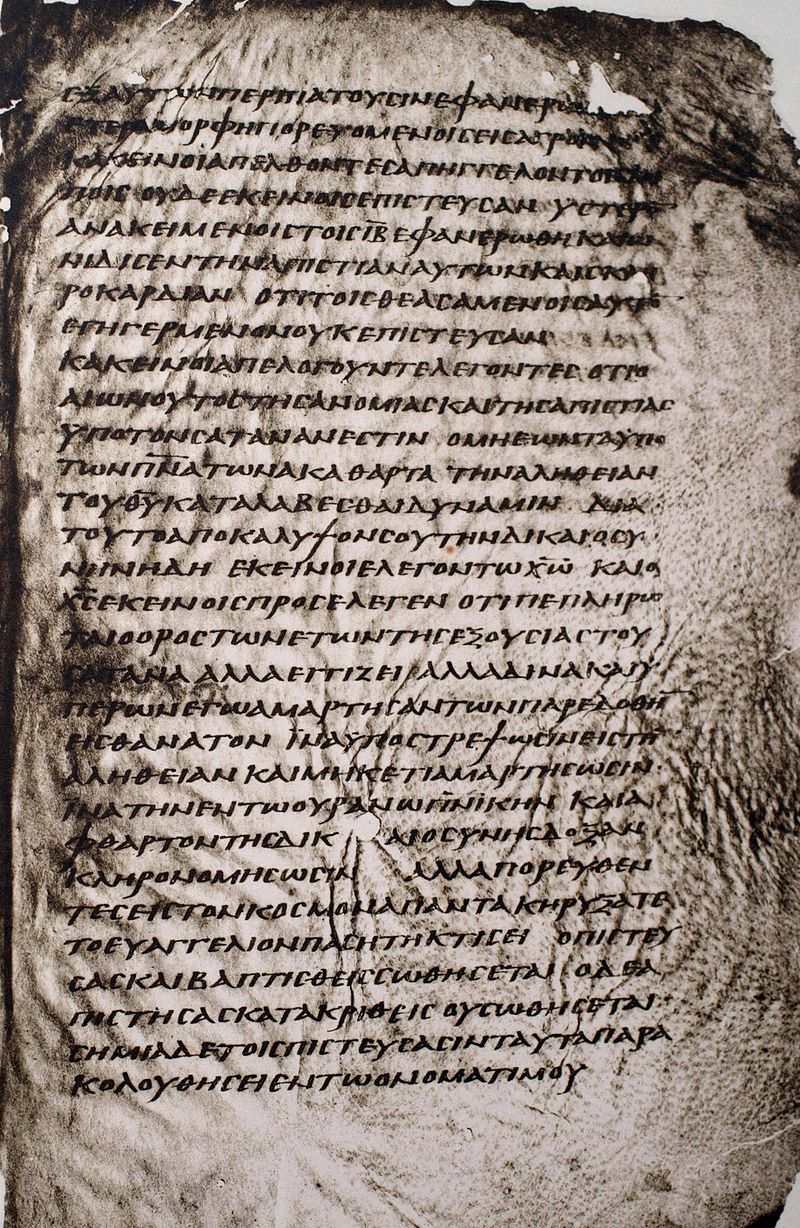 ΕΞΑΥΤΩΝΠΕΡΠΙΑΤΟΥCΙΝΕΦΑΝΕΡΩ
ΕΤΕΡΑΜΟΡΦΗΠΟΡΕΥΟΜΕΝΟΙCΕΙCΑΓΡΟΝ
ΚΑΚΕΙΝΟΙΑΠΕΛΘΟΝΤΕCΑΠΗΓΓΕΛΟΝΤΟΙC
ΠΟΙC ΟΥΔΕΕΚΕΙΝΟΙCΕΠΙCΤΕΥCΑΝ ΥCΤΕΡΟ
ΑΝΑΚΕΙΜΕΝΟΙCΤΟΙCΙ̅Β̅ΕΦΑΝΕΡΩΘΗΚΑΙΩ
ΝΙΔΙCΕΝΤΗΝΑΠΙCΤΙΑΝΑΥΤΩΝΚΑΙCΚΛΗ
ΡΟΚΑΡΔΙΑΝ ΟΤΙΤΟΙCΘΕΑCΑΜΕΝΟΙCΑΥΤΟ̅
ΕΓΗΓΕΡΜΕΝΟΝΟΥΚΕΠΙCΤΕΥCΑΝ
ΚΑΚΕΙΝΟΙΑΠΕΛΟΓΟΥΝΤΕΛΕΓΟΝΤΕC ΟΤΙΟ
ΑΙΩΝΟΥΤΟCΤΗCΑΝΟΜΙΑCΚΑΙΤΗCΑΠΙCΤΙΑC
ΥΠΟΤΟΝCΑΤΑΝΑΝΕCΤΙΝ ΟΜΗΕΩΝΤΑΥΠΟ
ΤΩΝΠ̅Ν̅ΑΤΩΝΑΚΑΘΑΡΤΑ ΤΗΝΑΛΗΘΕΙΑΝ
ΤΟΥΘ̅Υ̅ΚΑΤΑΛΑΒΕCΘΑΙΔΥΝΑΜΙΝ ΔΙΑ
ΤΟΥΤΟΑΠΟΚΑΛΥΨΟΝCΟΥΤΗΝΔΙΚΑΙΟCΥ
ΝΗΝΗΔΗ ΕΚΕΙΝΟΙΕΛΕΓΟΝΤΩΧ̅Ω̅ ΚΑΙΟ
Χ̅C̅ΕΚΕΙΝΟΙCΠΡΟCΕΛΕΓΕΝ ΟΤΙΠΕΠΛΗΡΩ
ΤΑΙΟΟΡΟCΤΩΝΕΤΩΝΤΗCΕΞΟΥCΙΑCΤΟΥ
CΑΤΑΝΑ ΑΛΛΑΕΓΓΙΖΕΙ ΑΛΛΑΔΙΝΑΚΑΙΥ
ΠΕΡΩΝΕΓΩΑΜΑΡΤΗCΑΝΤΩΝΠΑΡΕΔΟΘΗ̅
ΕΙCΘΑΝΑΤΟΝ ΪΝΑΥΠΟCΤΡΕΨΩCΙΝΕΙCΤΗ̅
ΑΛΗΘΕΙΑΝ ΚΑΙΜΗΚΕΤΙΑΜΑΡΤΗCΩCΙΝ
ΪΝΑΤΗΝΕΝΤΩΟΥΡΑΝΩΠ̅Ν̅ΙΚΗΝ ΚΑΙΑ
ΦΘΑΡΤΟΝΤΗCΔΙΚ ΑΙΟCΥΝΗCΔΟΞΑΝ
ΚΛΗΡΟΝΟΜΗCΩCΙΝ ΑΛΛΑΠΟΡΕΥΘΕΝ
ΤΕCΕΙCΤΟΝΚΟCΜΟΝΑΠΑΝΤΑΚΗΡΥΞΑΤΕ
ΤΟΕΥΑΓΓΕΛΙΟΝΠΑCΗΤΗΚΤΙCΕΙ ΟΠΙCΤΕΥ
CΑCΚΑΙΒΑΠΤΙCΘΕΙCCΩΘΗCΕΤΑΙ ΟΔΕΑ
ΠΙCΤΗCΑCΚΑΤΑΚΡΙΘΕΙC ΟΥCΩΘΗCΕΤΑΙ
CΗΜΙΑΔΕΤΟΙCΠΙCΤΕΥCΑCΙΝΤΑΥΤΑΠΑΡΑ
ΚΟΛΟΥΘΗCΕΙΕΝΤΩΟΝΟΜΑΤΙΜΟΥ